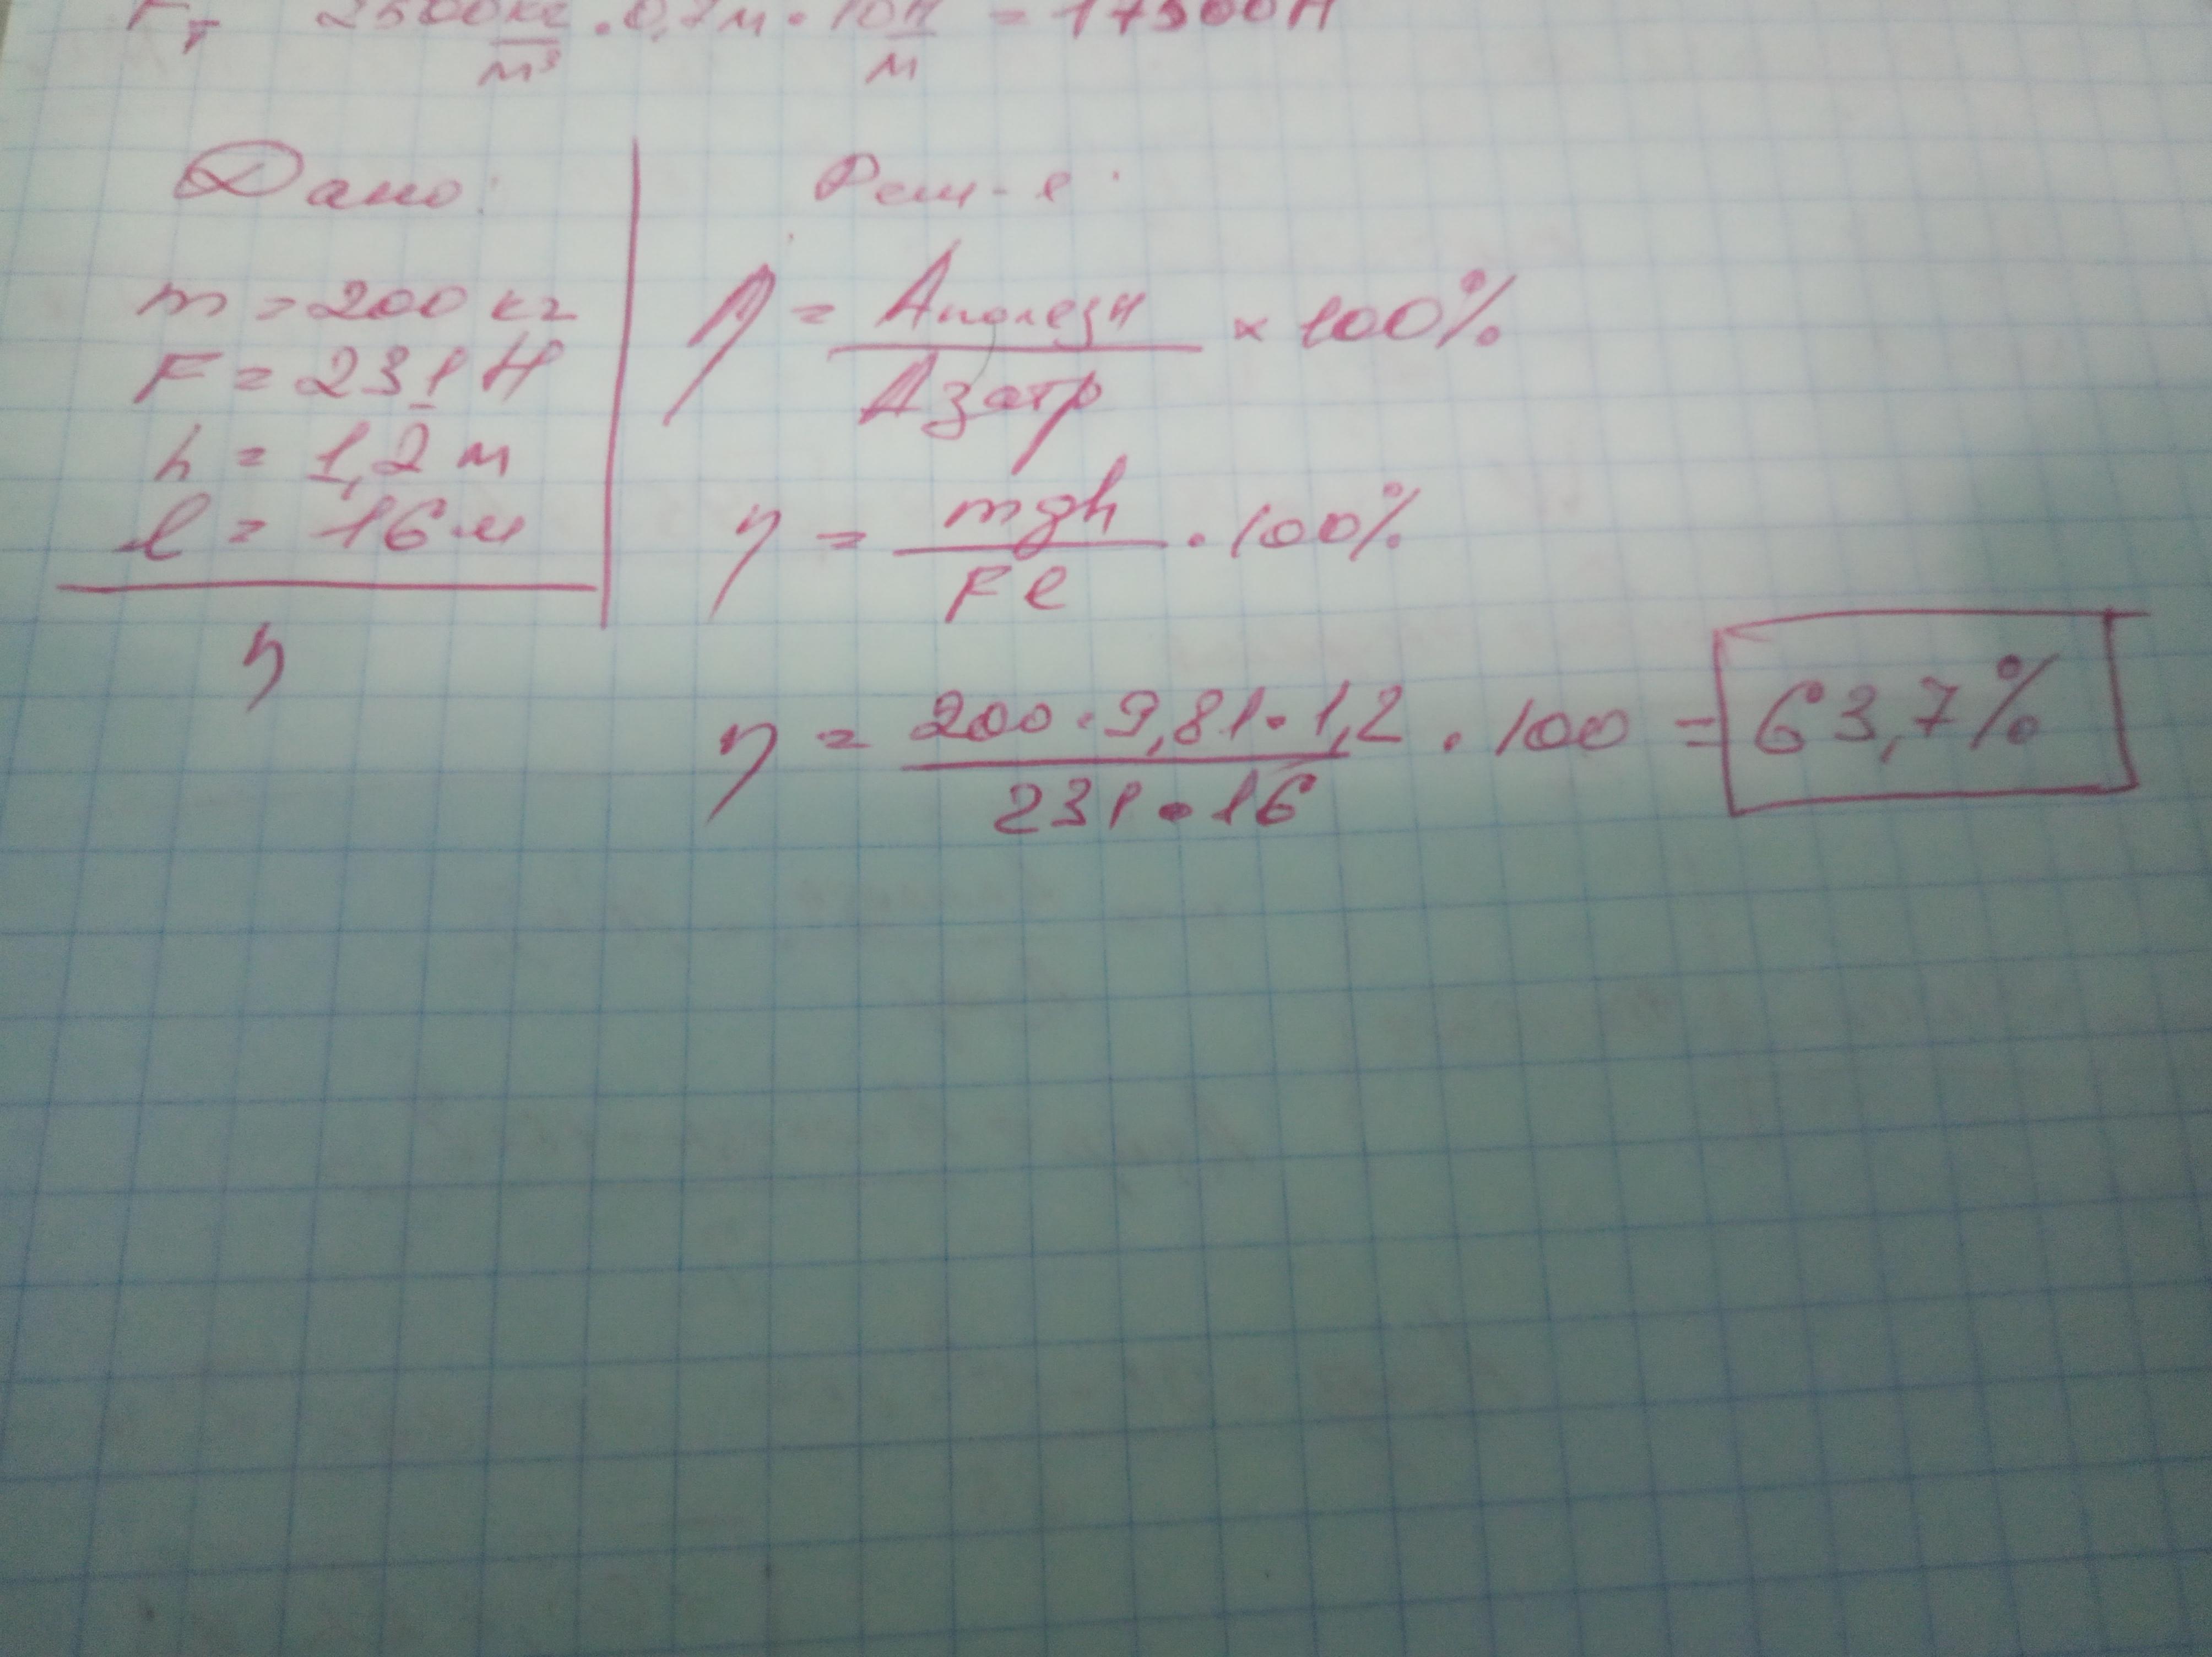 Fт 2500кг/м³ · 0,7м · 10Н/м = 17500Н
Дано:
m = 200 кг
F = 231 Н
h = 1,2 м
l = 16 м
η
Реш-е:
η = Aполезн/Aзатр × 100%
η = mgh/Fl · 100%
η = 200 · 9,81 · 1,2/231 · 16 · 100 = 63,7%